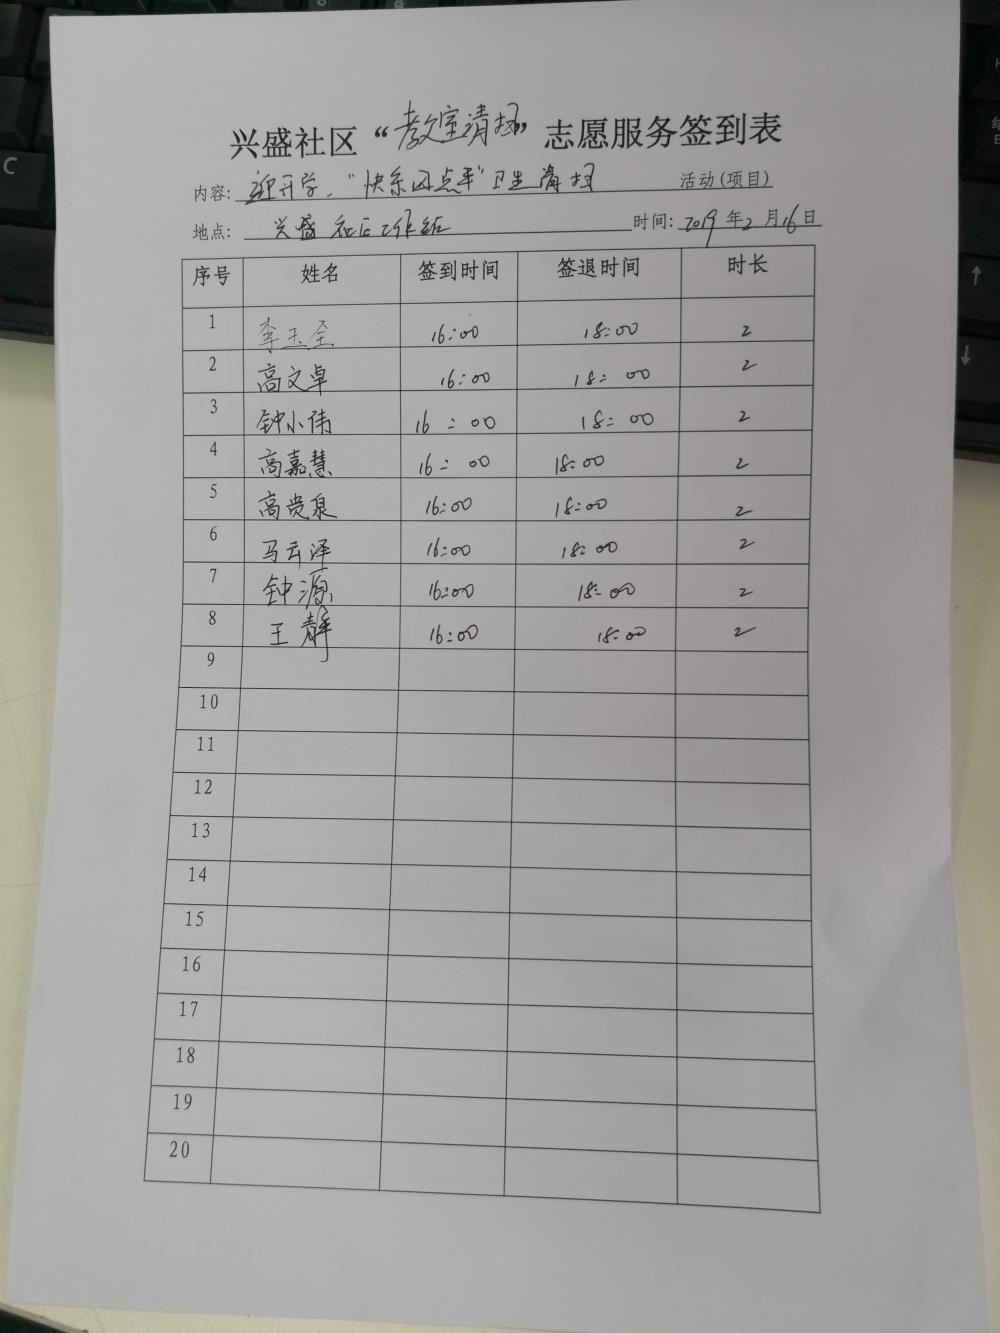 兴盛社区“教室清扫”志愿服务签到表
内容: 迎开学、“快乐四点半”卫生清扫 活动(项目)
地点: 兴盛社区工作站 时间: 2019年2月16日
序号 姓名 签到时间 签退时间 时长
1 李玉全 16:00 18:00 2
2 高文卓 16:00 18:00 2
3 钟小伟 16:00 18:00 2
4 高嘉慧 16:00 18:00 2
5 高贵泉 16:00 18:00 2
6 马云泽 16:00 18:00 2
7 钟源 16:00 18:00 2
8 王静 16:00 18:00 2
9
10
11
12
13
14
15
16
17
18
19
20
C